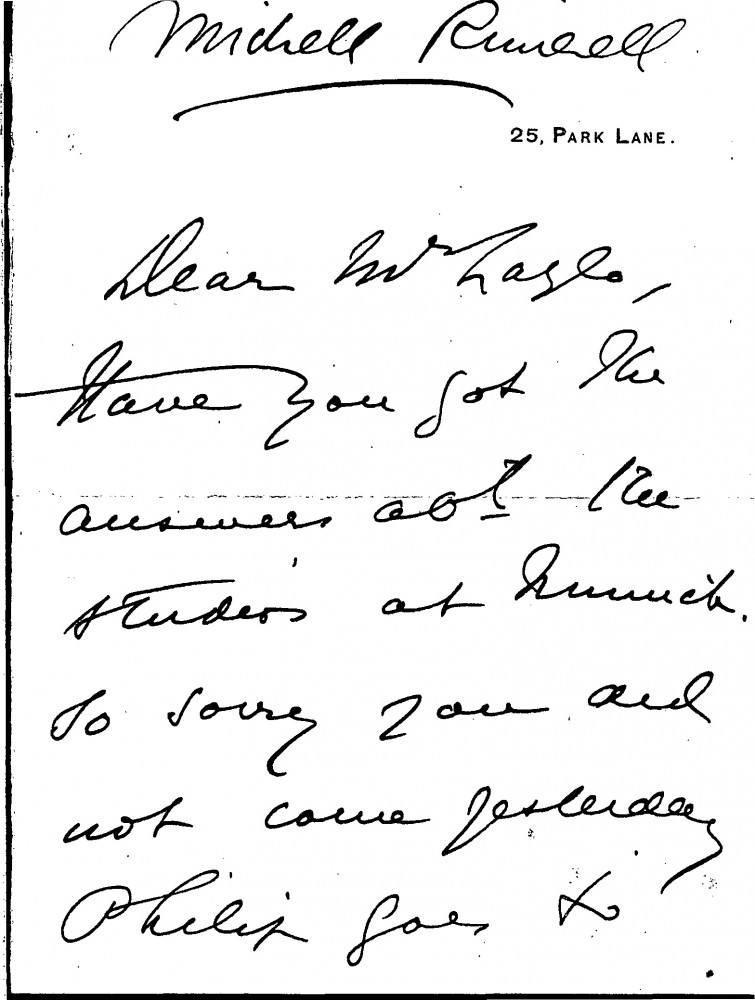 25, PARK LANE.
Dear Mr Laszlo,
Have you got the
answers abt the
studios at Munich.
So sorry you did
not come yesterday
Philip goes to